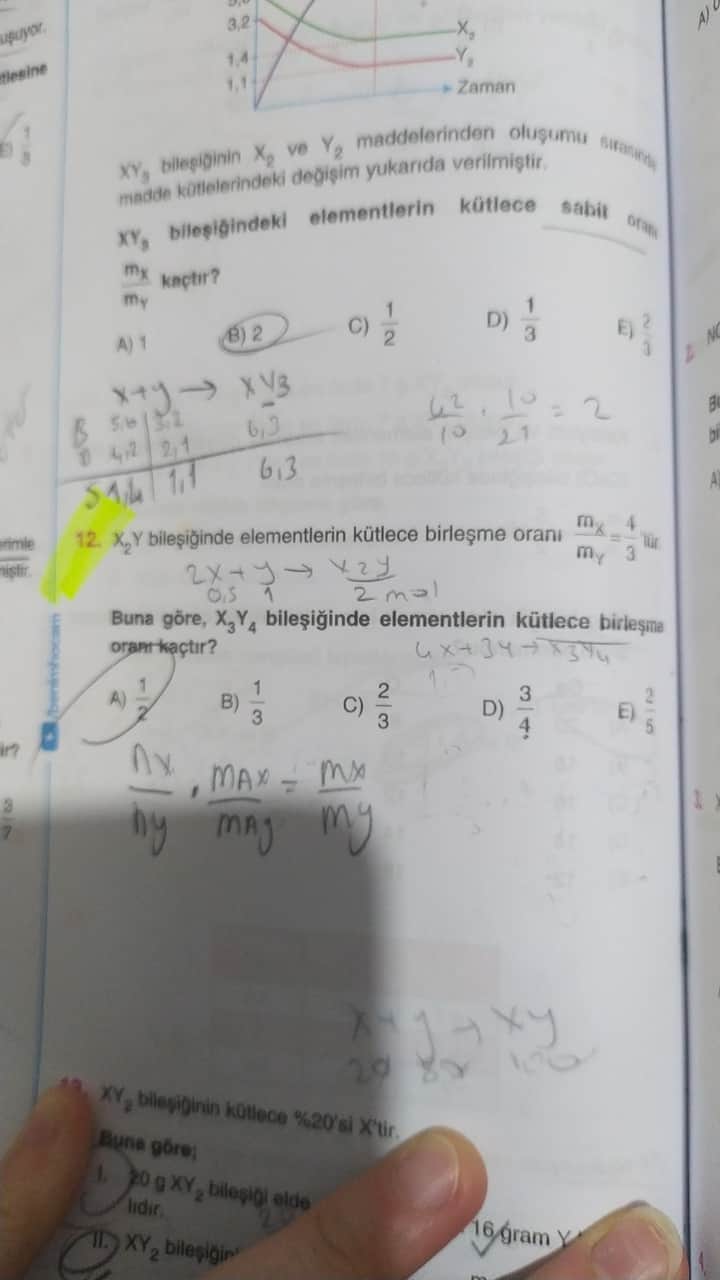 3,2
1,4
1,1
X₂
Y₂
Zaman
XY₃ bileşiğinin X₂ ve Y₂ maddelerinden oluşumu sırasında
madde kütlelerindeki değişim yukarıda verilmiştir.
XY₃ bileşiğindeki elementlerin kütlece sabit oranı
mX/mY kaçtır?
A) 1 B) 2 C) 1/2 D) 1/3 E) 2/3
x+y → XY3
B 5,6 3,2 6,3
4,2 2,1
1,4 1,1 6,3
42/10 . 10/21 = 2
12. X₂Y bileşiğinde elementlerin kütlece birleşme oranı mX/mY = 4/3 'tür.
2x+y → x2y
0,5 1 2 mol
Buna göre, X₃Y₄ bileşiğinde elementlerin kütlece birleşme
oranı kaçtır?
A) 1/2 B) 1/3 C) 2/3 D) 3/4 E) 2/5
nx/ny . MAx/MAy = mx/my
x+y → xy
20 80
XY₂ bileşiğinin kütlece %20'si X'tir.
Buna göre;
I. 20 g XY₂ bileşiği elde
lıdır.
II. XY₂ bileşiğin
16 gram Y